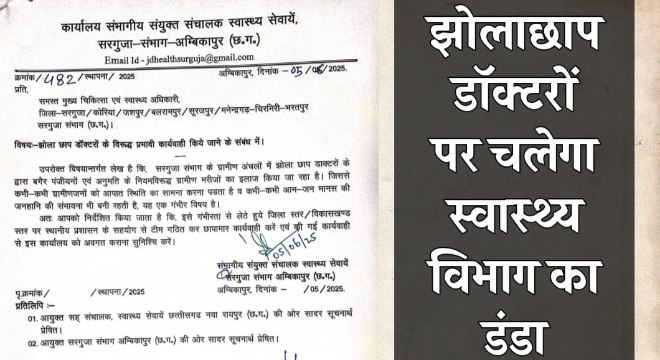 कार्यालय संभागीय संयुक्त संचालक स्वास्थ्य सेवायें,
सरगुजा–संभाग–अम्बिकापुर (छ.ग.)
Email Id - jdhealthsurguja@gmail.com
क्रमांक/482/स्थापना/ 2025 अम्बिकापुर, दिनांक -05/06/2025.
प्रति,
समस्त मुख्य चिकित्सा एवं स्वास्थ्य अधिकारी,
जिला–सरगुजा/कोरिया/जशपुर/बलरामपुर/सूरजपुर/मनेन्द्रगढ़–चिरमिरी–भरतपुर
सरगुजा संभाग (छ.ग.)।
विषय:–झोला छाप डॉक्टरों के विरूद्ध प्रभावी कार्यवाही किये जाने के संबंध में।
उपरोक्त विषयान्तर्गत लेख है कि, सरगुजा संभाग के ग्रामीण अंचलों में झोला छाप डाक्टरों के
द्वारा बगैर पंजीयनों एवं अनुमति के नियमविरूद्ध ग्रामीण मरीजों का इलाज किया जा रहा है। जिससे
कभी–कभी ग्रामीणजनों को आपात स्थिति का सामना करना पडता है व कभी–कभी आम–जन मानस की
जनहानि की संभावना भी बनी रहती है, यह एक गंभीर विषय है।
अतः आपको निर्देशित किया जाता है कि, इसे गंभीरता से लेते हुये जिला स्तर/विकासखण्ड
स्तर पर स्थानीय प्रशासन के सहयोग से टीम गठित कर छापामार कार्यवाही करें एवं की गई कार्यवाही
से इस कार्यालय को अवगत कराना सुनिश्चि करें।
05/06/25
संभागीय संयुक्त संचालक स्वास्थ्य सेवायें
सरगुजा संभाग अम्बिकापुर (छ.ग.)
पृ.क्रमांक/ /स्थापना/ 2025 अम्बिकापुर, दिनांक – /05/2025.
प्रतिलिपि :–
01. आयुक्त सह संचालक, स्वास्थ्य सेवायें छत्तीसगढ नवा रायपुर (छ.ग.) की ओर सादर सूचनार्थ
प्रेषित।
02. आयुक्त सरगुजा संभाग अम्बिकापुर (छ.ग.) की ओर सादर सूचनार्थ प्रेषित।
झोलाछाप
डॉक्टरों
पर चलेगा
स्वास्थ्य
विभाग का
डंडा